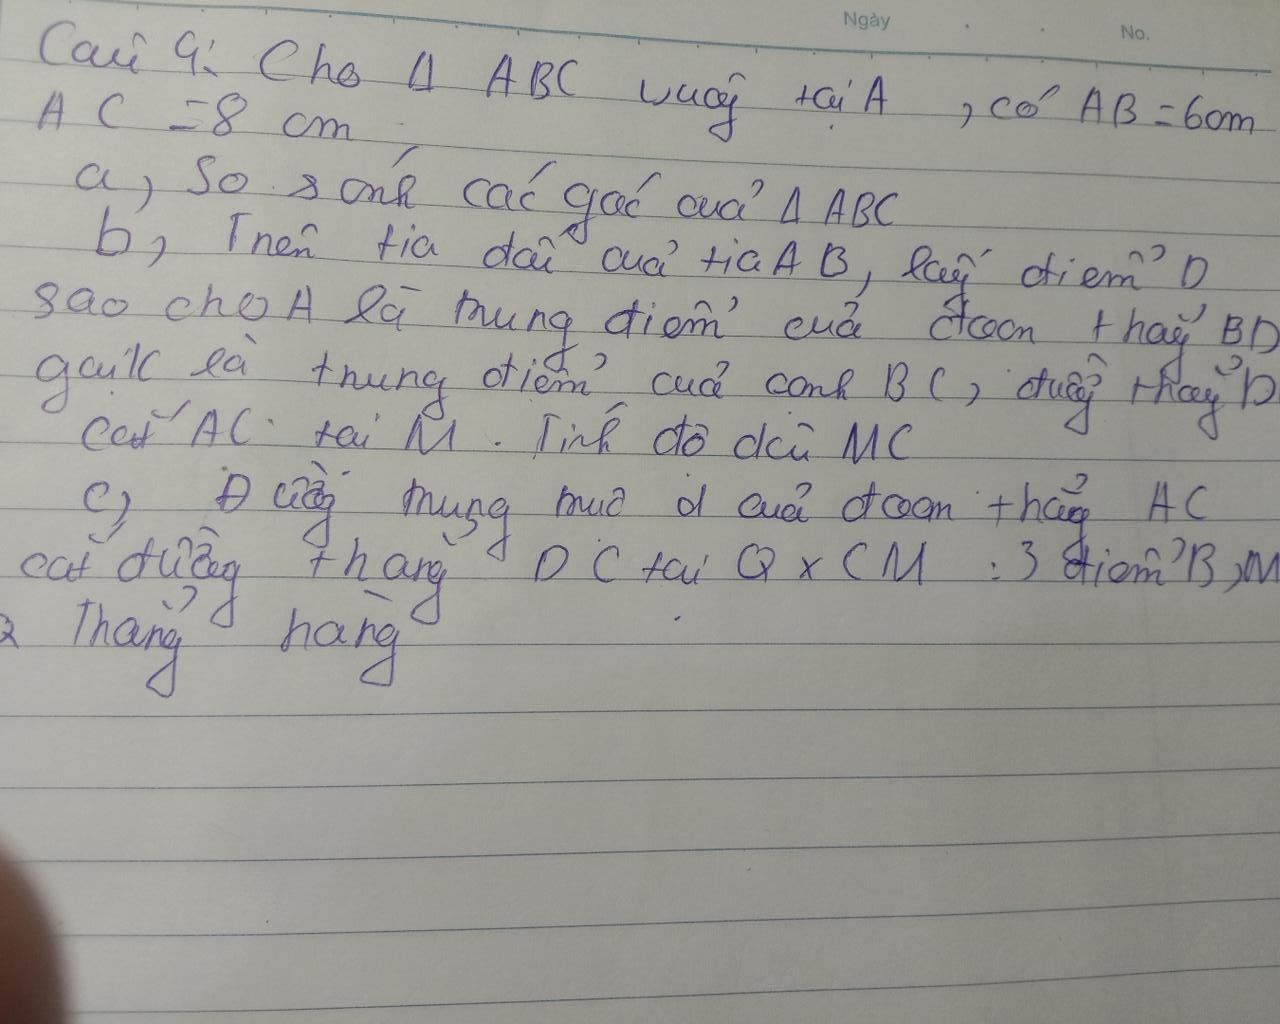 Ngày No.
Câu 4: Cho Δ ABC vuông tại A, có AB = 6cm
AC = 8 cm
a, So sánh các góc của Δ ABC
b, Trên tia đối của tia AB, lấy điểm D
sao cho A là trung điểm của đoạn thẳng BD
gọi K là trung điểm của cạnh BC, đường thẳng D
cắt AC tại M. Tính độ dài MC
c, Đường trung trực d của đoạn thẳng AC
cắt đường thẳng DC tại Q x CM : 3 điểm B, M
Q Thẳng hàng